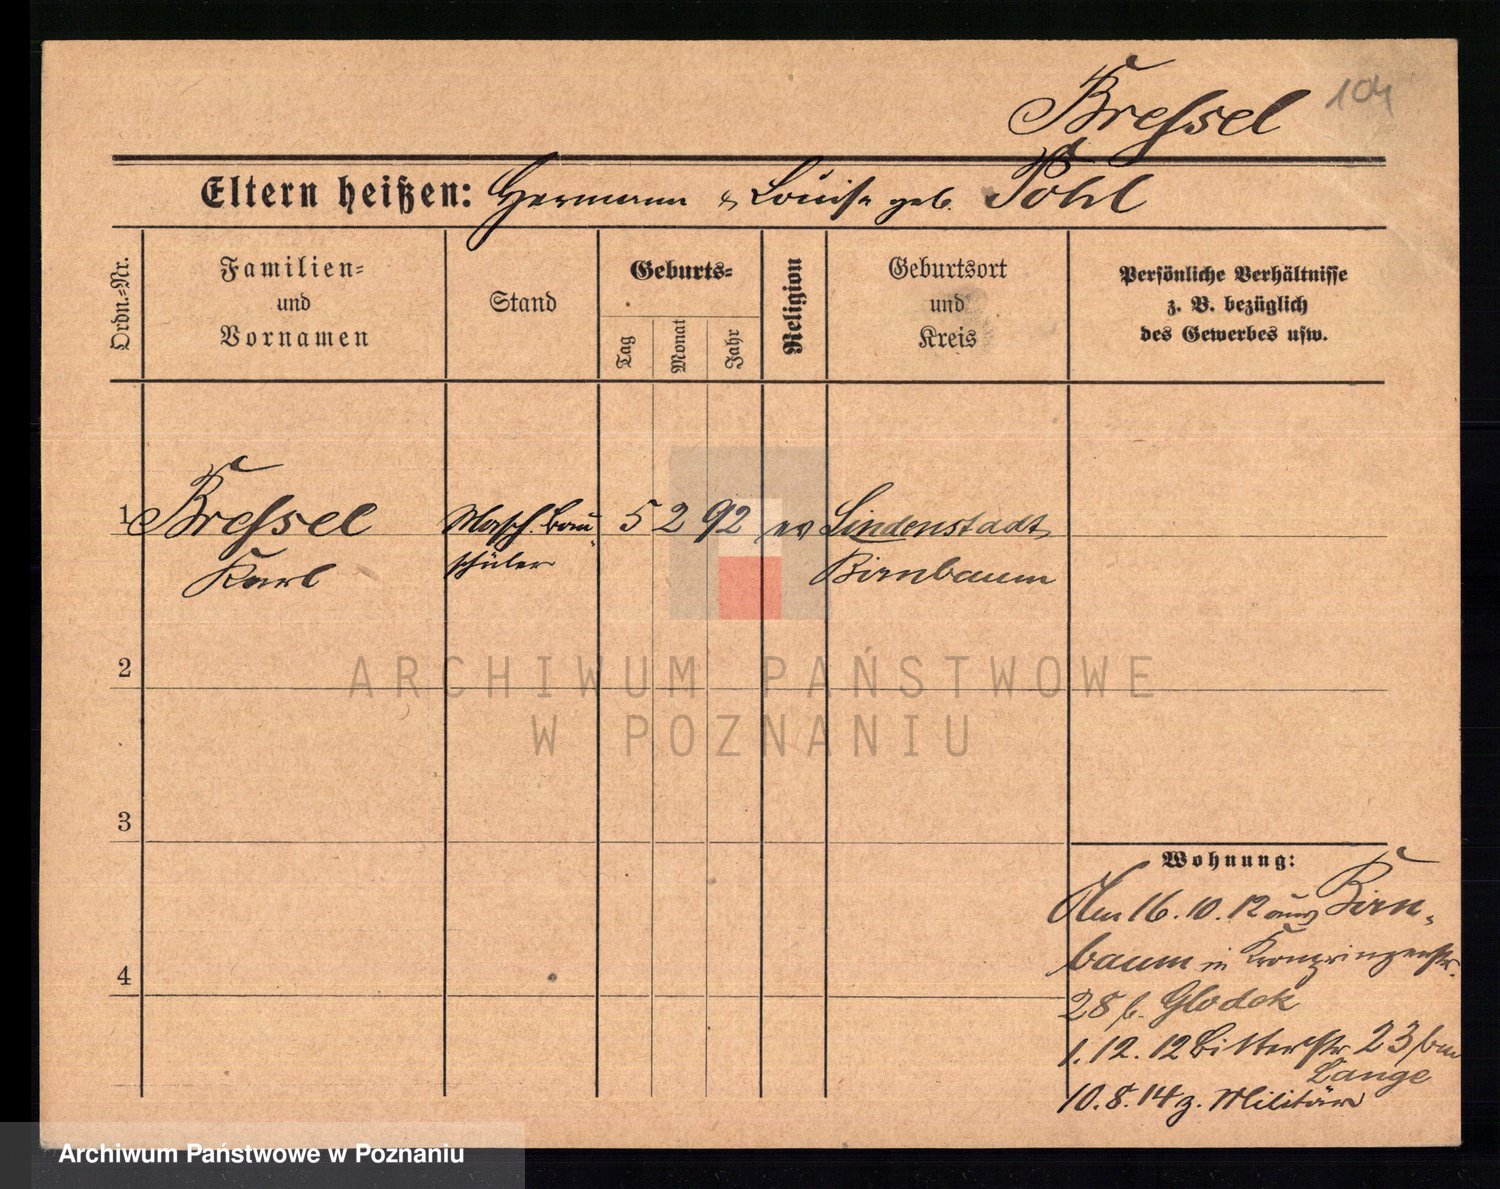 Bressel
104
Eltern heißen: Hermann & Louise geb. Pohl
Ordn.-Nr.
Familien-
und
Vornamen
Stand
Geburts-
Tag
Monat
Jahr
Religion
Geburtsort
und
Kreis
Persönliche Verhältnisse
z. B. bezüglich
des Gewerbes usw.
1 Bressel Masch. Bau- 5 2 92 ev Lindenstadt
Karl schüler Birnbaum
2
3
4
Wohnung:
Am 16. 10. 12 aus Birn-
baum in Kronprinzenstr.
28 b. Glodek
1. 12. 12 Bitterstr. 23 bm
Lange
10. 8. 14 z. Militär
ARCHIWUM PAŃSTWOWE
W POZNANIU
Archiwum Państwowe w Poznaniu